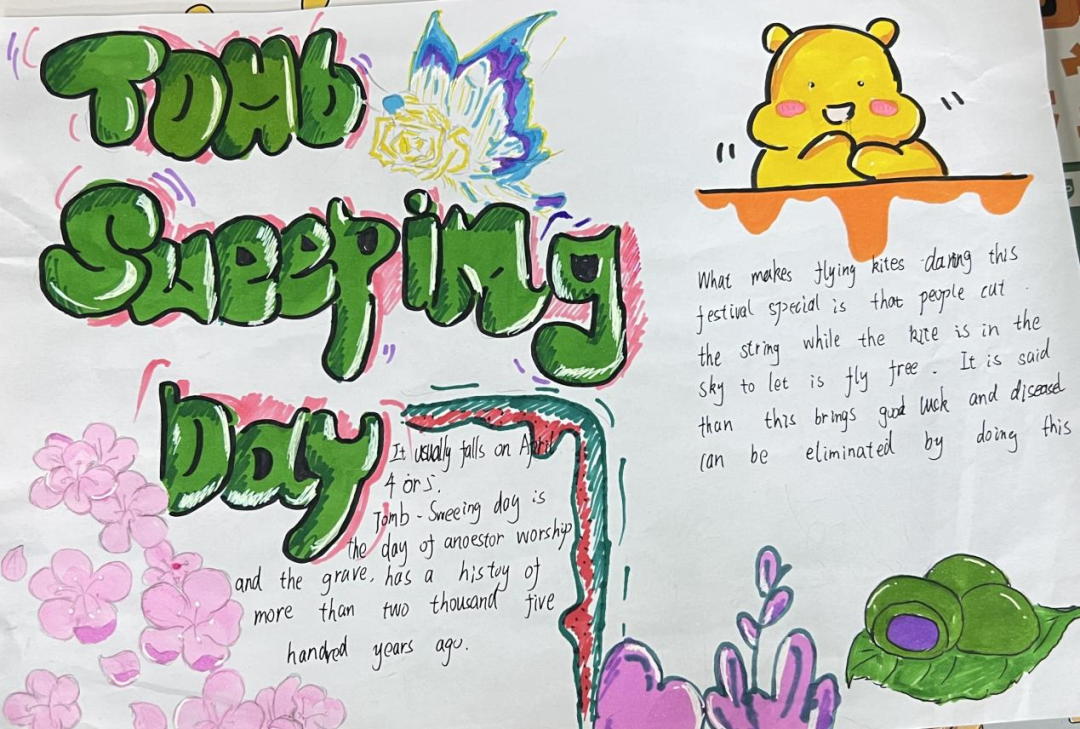 Tomb
Sweeping
Day
It usually falls on April
4 or 5.
Tomb-Sweeing day is
the day of anoestor worship
and the grave, has a histoy of
more than two thousand five
handred years ago.
What makes flying kites daring this
festival special is that people cut
the string while the kite is in the
sky to let is fly free. It is said
than this brings good luck and disease
can be eliminated by doing this